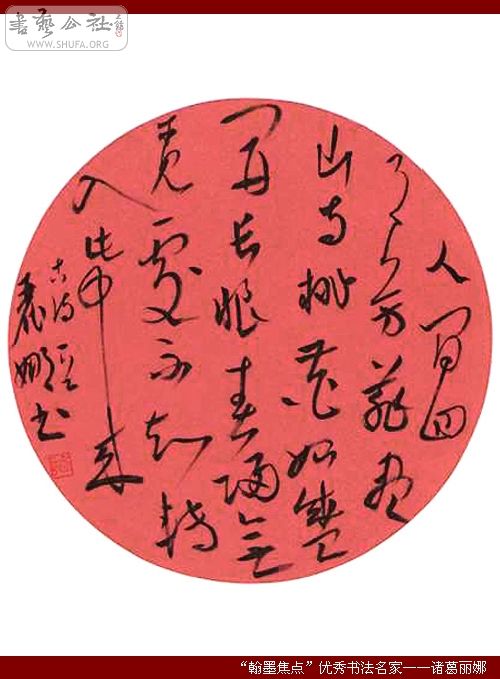 書藝公社
WWW.SHUFA.ORG
人间四
月芳菲尽
山寺桃花始盛
开长恨春归无
觅处不知转
入此中来
古诗一首
丽娜书
“翰墨焦点”优秀书法名家——诸葛丽娜